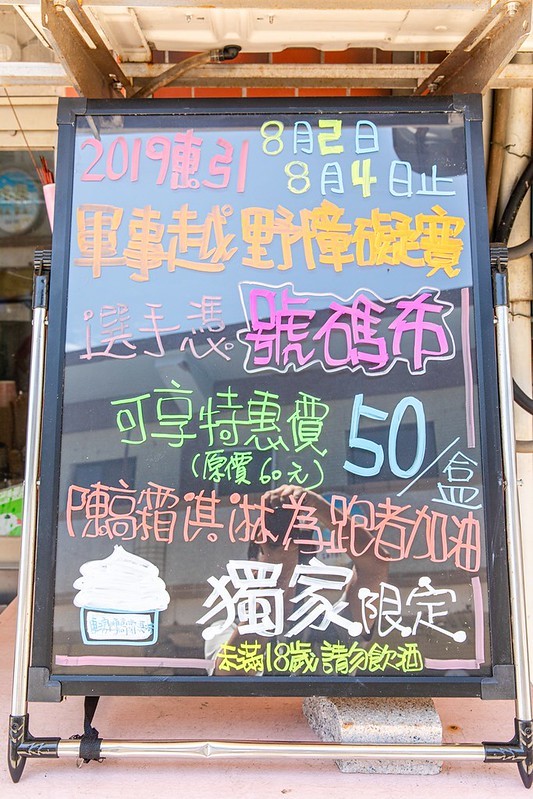 2019東引 8月2日
8月4日止
軍事越野障礙賽
選手憑號碼布
可享特惠價 50/盒
(原價60元)
陳高霜淇淋為跑者加油
獨家限定
未滿18歲請勿飲酒